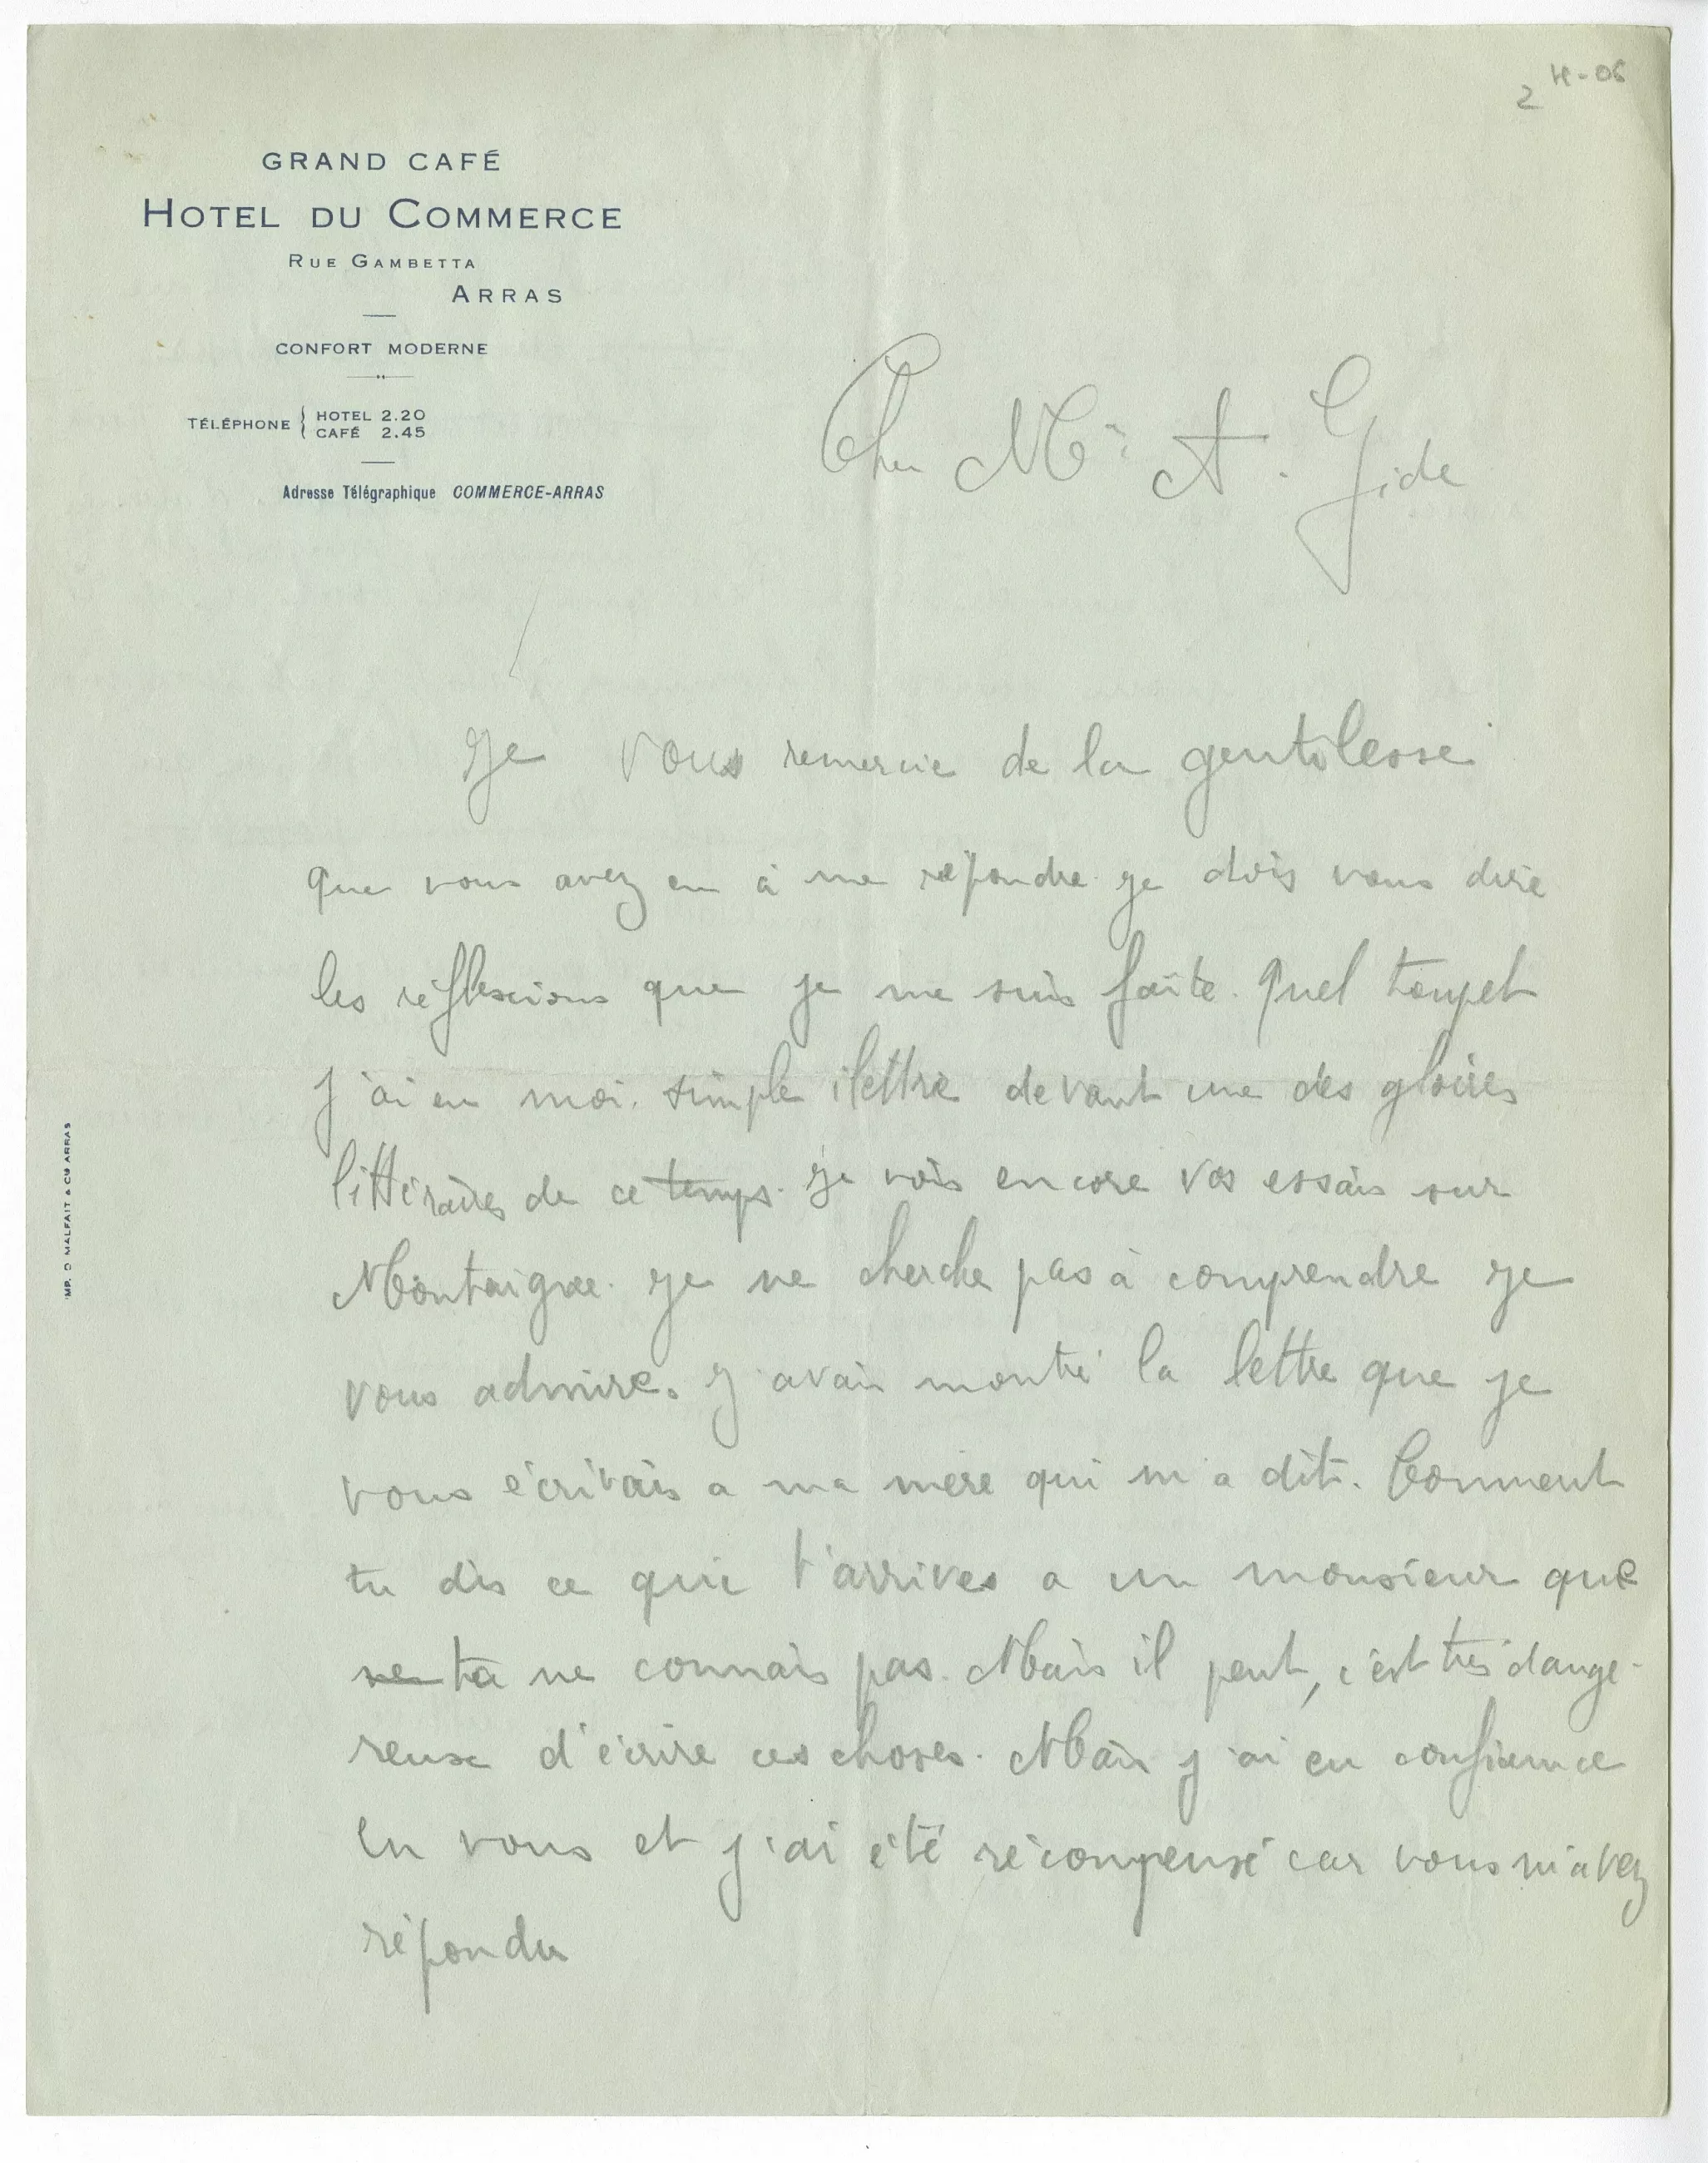 2 H-06
GRAND CAFÉ
HOTEL DU COMMERCE
RUE GAMBETTA
ARRAS
CONFORT MODERNE
TÉLÉPHONE { HOTEL 2.20
CAFÉ 2.45
Adresse Télégraphique COMMERCE-ARRAS
Cher Mr A. Gide
Je vous remercie de la gentilesse
que vous avez eu à me répondre je dois vous dire
les réflescions que je me suis faite. Quel toupet
j'ai eu moi. simple ilettré devant une des gloires
littéraires de ce temps. Je vois encore vos essais sur
Montaigne. Je ne cherche pas à comprendre je
vous admire. J'avais montré la lettre que je
vous écrivais a ma mère qui m'a dit. Comment
tu dis ce qui t'arrives a un monsieur que
ne tu ne connais pas. Mais il peut, c'est très dange-
reux d'écrire ces choses. Mais j'ai eu confience
en vous et j'ai été récompensé car vous m'avez
répondu
IMP. D MALFAIT & CIE ARRAS